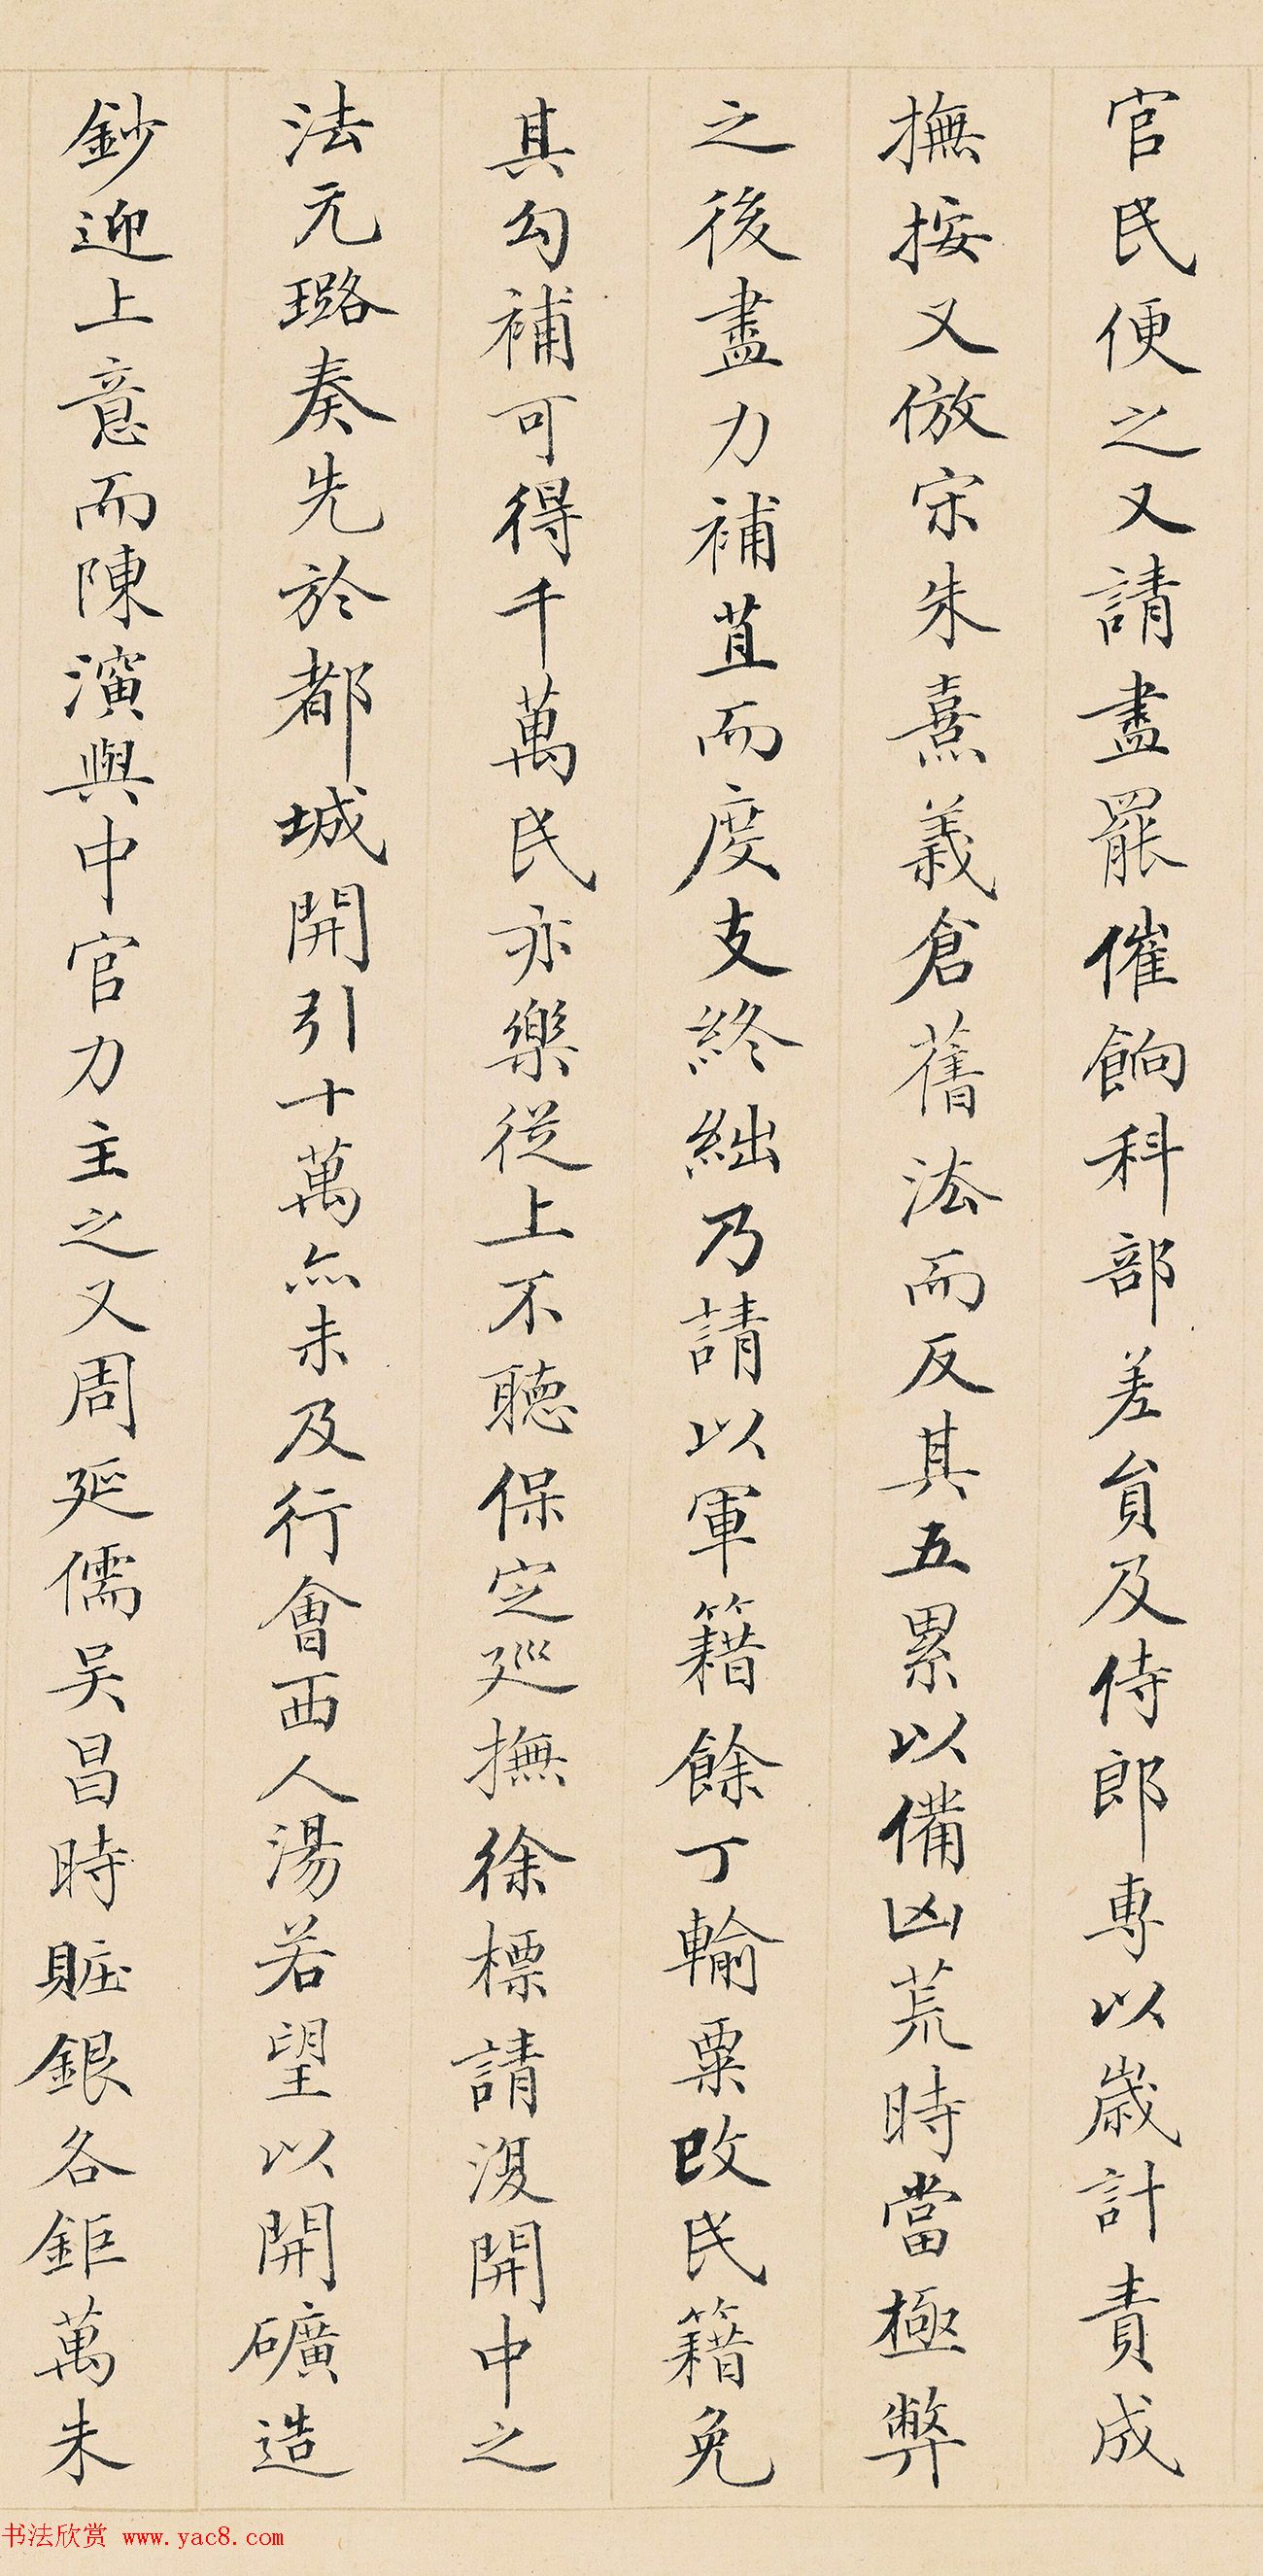 官民便之又請盡罷催餉科部差貟及侍郎專以歲計責成
撫按又倣宋朱熹義倉舊法而反其五累以備凶荒時當極弊
之後盡力補苴而度支終絀乃請以軍籍餘丁輸粟改民籍免
其勾補可得千萬民亦樂從上不聽保定廵撫徐標請復開中之
法元璐奏先於都城開引十萬亦未及行會西人湯若望以開礦造
鈔迎上意而陳演與中官力主之又周延儒吴昌時賍銀各鉅萬未
书法欣赏 www.yac8.com